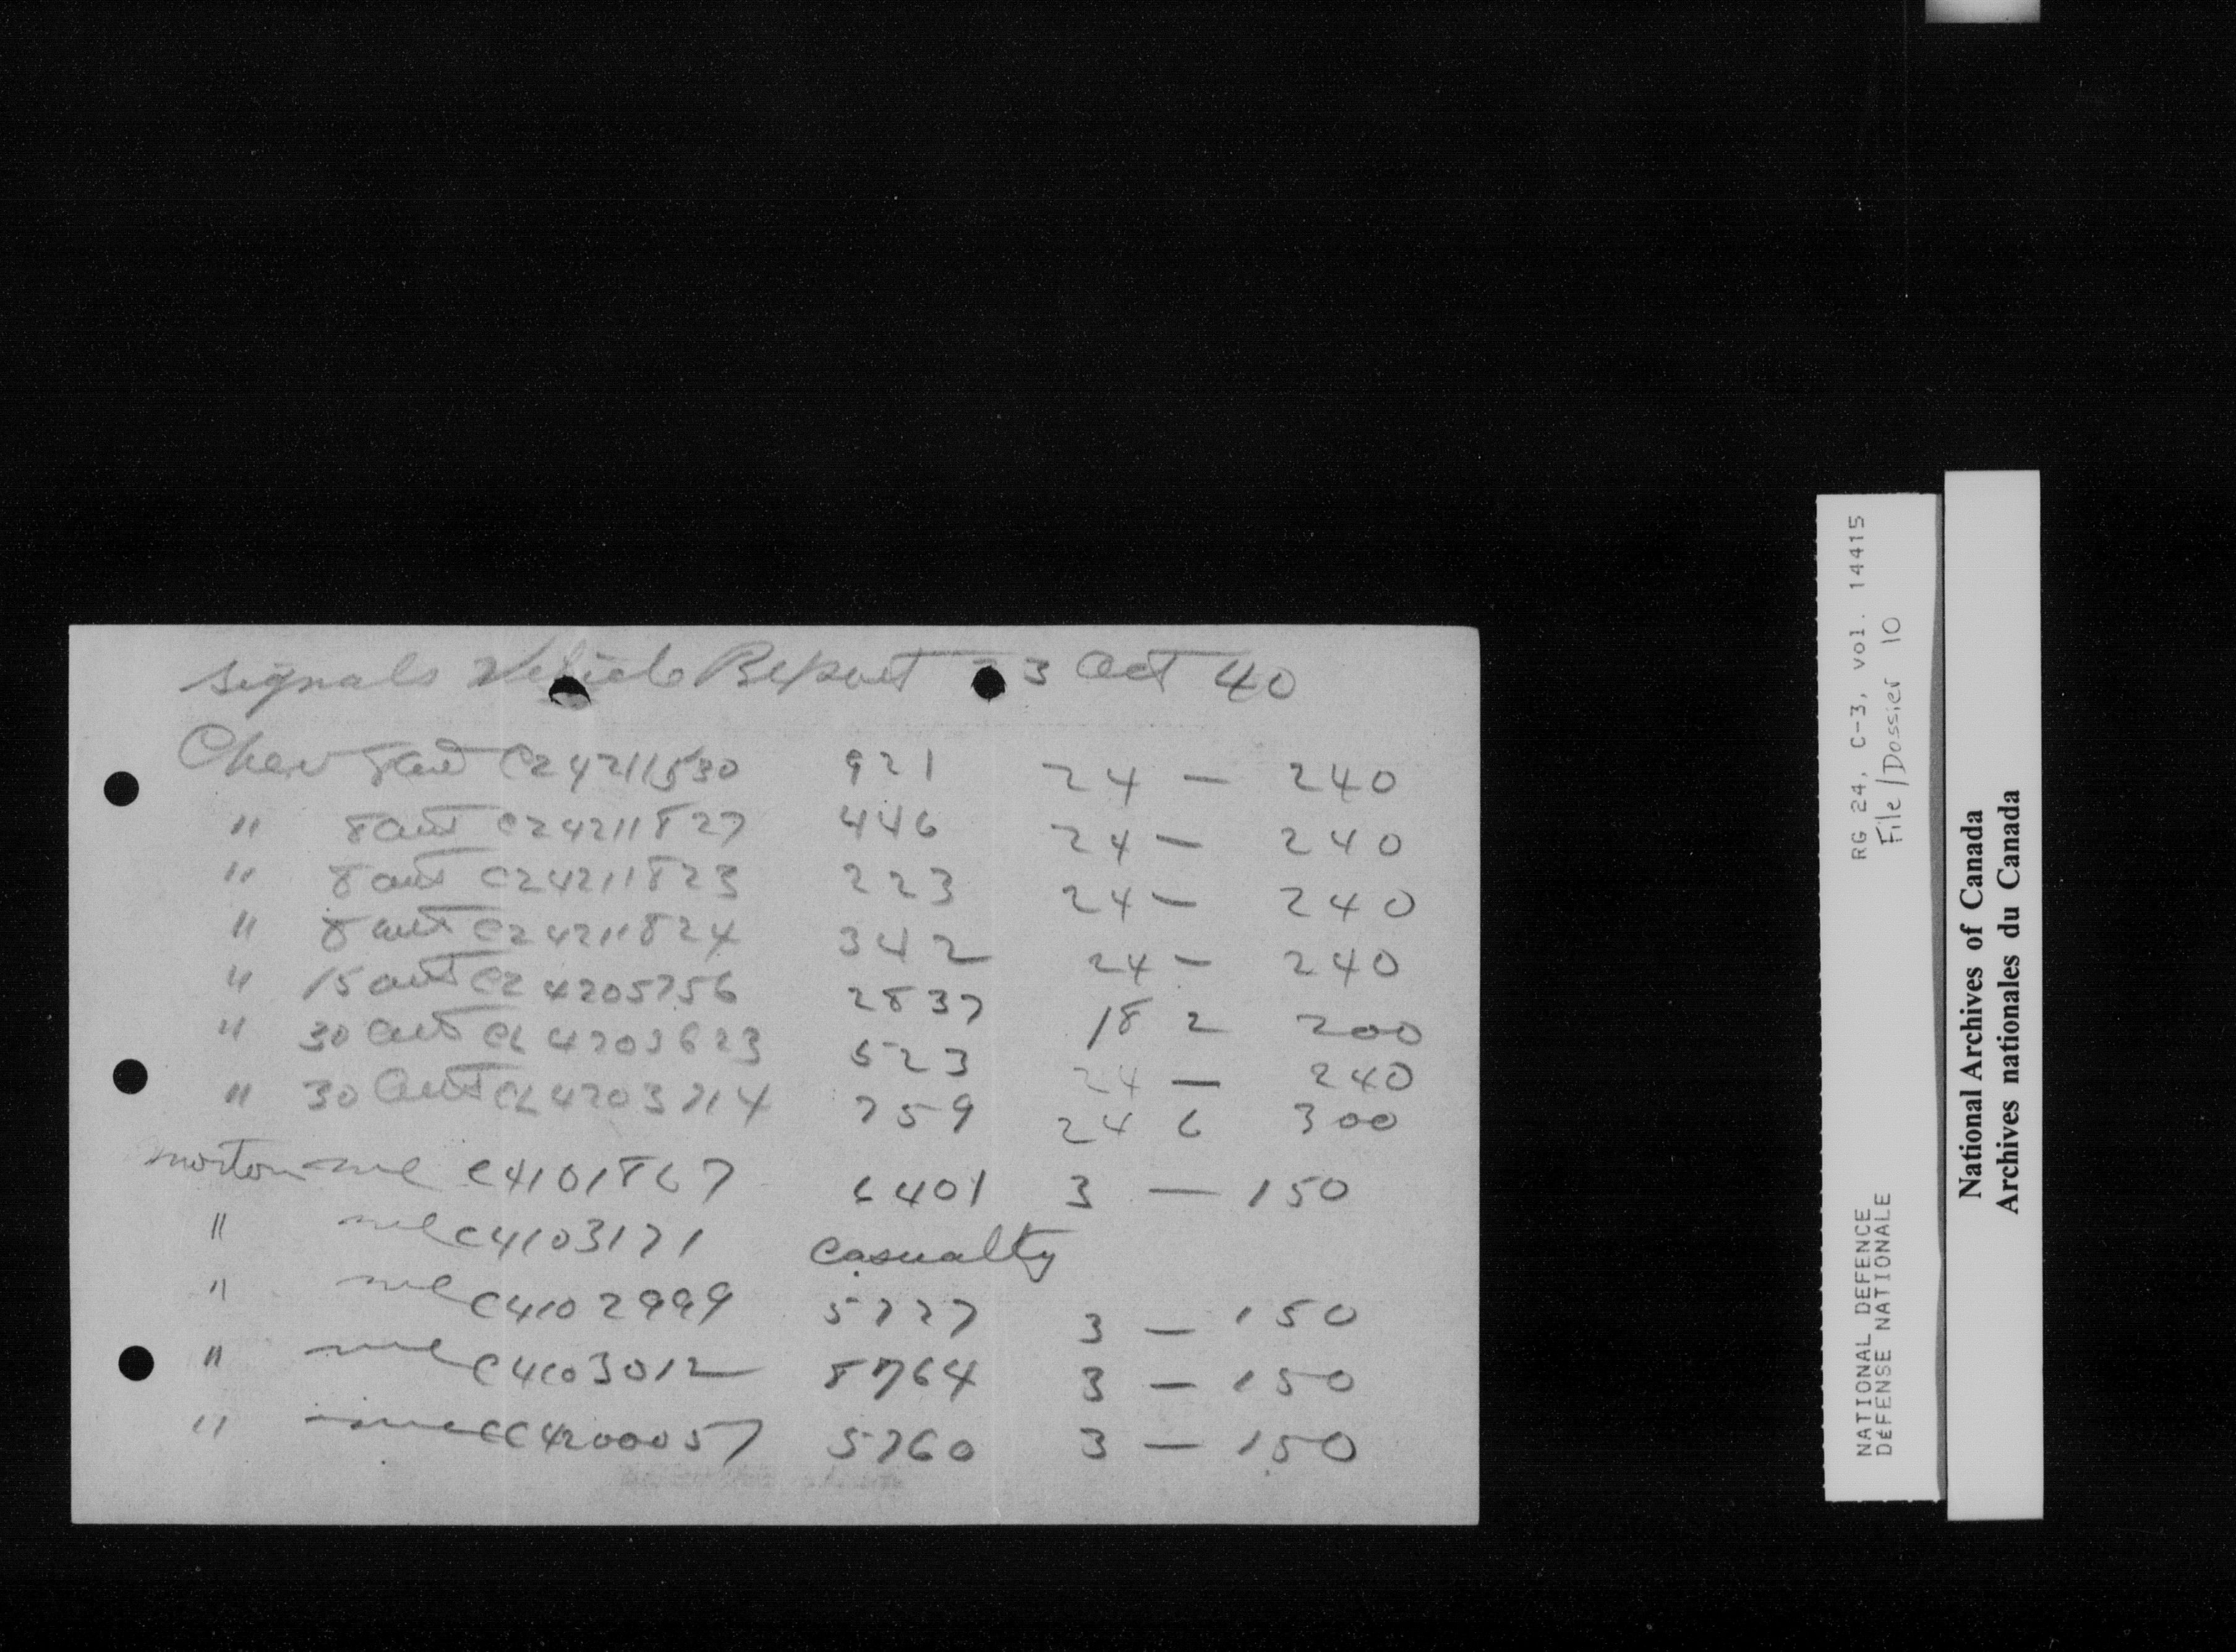 Signals Vehicle Report - 3 Oct 40
Chev 8 cwt CZ4211530 921 24 — 240
" 8 cwt CZ4211827 446 24 — 240
" 8 cwt CZ4211823 223 24 — 240
" 8 cwt CZ4211824 342 24 — 240
" 15 cwt CZ4205756 2837 18 2 200
" 30 cwt CL4203623 523 24 — 240
" 30 cwt CL4203714 759 24 6 300
Norton m/c C4101867 6401 3 — 150
" m/c C4103171 Casualty
" m/c C4102999 5727 3 — 150
" m/c C4103012 8764 3 — 150
" m/c CC4200057 5760 3 — 150
NATIONAL DEFENCE RG 24, C-3, vol. 14415
DÉFENSE NATIONALE File/Dossier 10
National Archives of Canada
Archives nationales du Canada